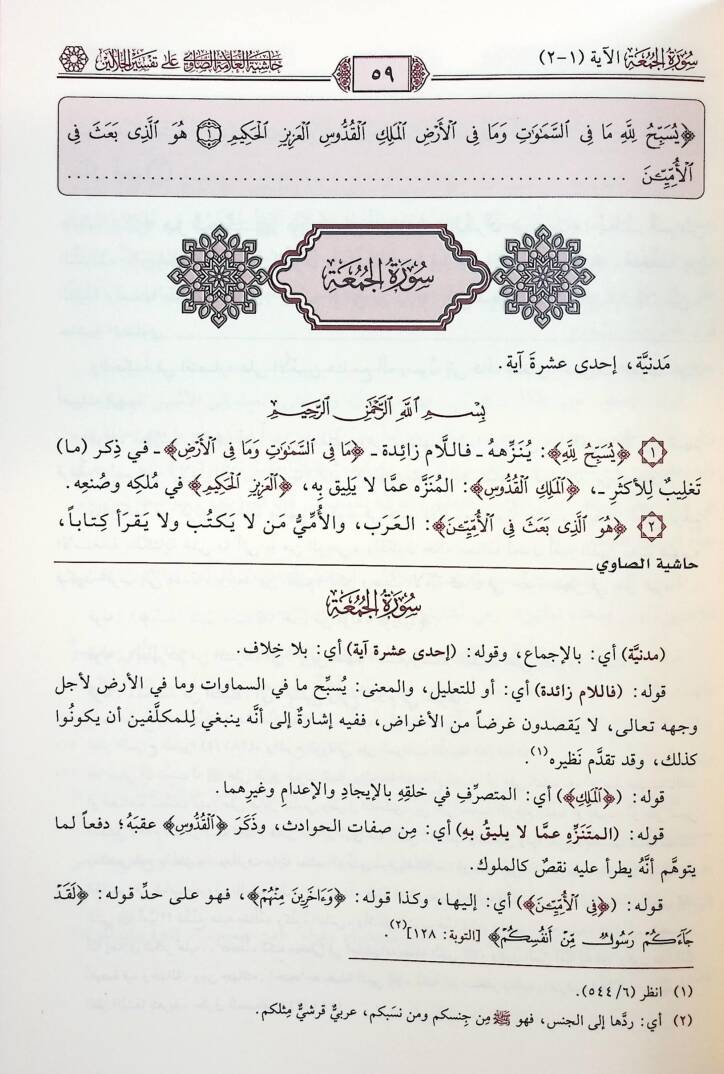 سُورَةُ الجُمُعَةِ الآية (١-٢)
٥٩
حاشية العلامة الصاوي على تفسير الجلالين
﴿يُسَبِّحُ لِلَّهِ مَا فِى السَّمَٰوَٰتِ وَمَا فِى الْأَرْضِ الْمَلِكِ الْقُدُّوسِ الْعَزِيزِ الْحَكِيمِ ۝١ هُوَ الَّذِى بَعَثَ فِى
الْأُمِّيِّـۧنَ ..........
سُورَةُ الجُمُعَةِ
مَدنيَّة، إحدى عشرةَ آية.
بِسْمِ اللَّهِ الرَّحْمَٰنِ الرَّحِيمِ
١ ﴿يُسَبِّحُ لِلَّهِ﴾: يُنَزِّههُ ـ فاللَّام زائدة ـ ﴿مَا فِى السَّمَٰوَٰتِ وَمَا فِى الْأَرْضِ﴾ـ في ذِكر (ما)
تَغليبٌ لِلأكثَرِ ـ، ﴿الْمَلِكِ الْقُدُّوسِ﴾: المُنَزَّه عمَّا لا يَليق بِه، ﴿الْعَزِيزِ الْحَكِيمِ﴾ في مُلكِه وصُنعِه.
٢ ﴿هُوَ الَّذِى بَعَثَ فِى الْأُمِّيِّـۧنَ﴾: العَرَب، والأُمِّيُّ مَن لا يَكتُب ولا يَقرَأ كِتاباً،
حاشية الصاوي
سُورَةُ الجُمُعَةِ
(مدنيَّة) أي: بالإجماع، وقوله: (إحدى عشرة آية) أي: بلا خِلاف.
قوله: (فاللَّام زائدة) أي: أو للتعليل، والمعنى: يُسبِّح ما في السماوات وما في الأرض لأجل
وجهه تعالى، لا يَقصدون غرضاً من الأغراض، ففيه إشارةٌ إلى أنَّه ينبغي لِلمكلَّفين أن يكونُوا
كذلك، وقد تقدَّم نَظيره(١).
قوله: (﴿الْمَلِكِ﴾) أي: المتصرِّف في خلقِهِ بالإيجادِ والإعدامِ وغيرِهما.
قوله: (المتنَزَّه عمَّا لا يليقُ بِهِ) أي: مِن صفات الحوادث، وذَكَرَ ﴿الْقُدُّوسِ﴾ عقبَهُ؛ دفعاً لما
يتوهَّم أنَّهُ يطرأ عليه نقصٌ كالملوك.
قوله: (﴿فِى الْأُمِّيِّـۧنَ﴾) أي: إليها، وكذا قوله: ﴿وَءَاخَرِينَ مِنْهُمْ﴾، فهو على حدِّ قوله: ﴿لَقَدْ
جَاءَكُمْ رَسُولٌ مِّنْ أَنفُسِكُمْ﴾ [التوبة: ١٢٨](٢)
(١) انظر (٥٤٤/٦).
(٢) أي: ردَّها إلى الجنس، فهو ﷺ مِن جِنسكم ومن نسَبكم، عربيٌّ قرشيٌّ مِثلكم.